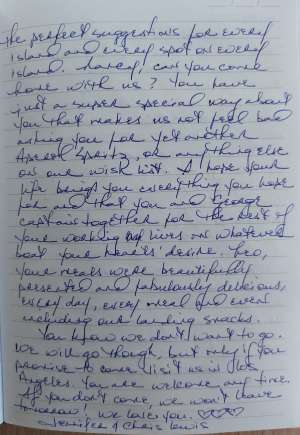 the perfect suggestions for every
island and every spot on every
island. , can you come
home with us? You have
just a super special way about
you that makes us not feel bad
asking you for yet another
Aperol Spritz, or anything else
on our wish list. I hope your
life brings you everything you hope
for and that you and George
captain together for the rest of
your working lives on whatever
boat your hearts' desire. Leo,
your meals were beautifully
presented and fabulously delicious,
every day, every meal and even
including our landing snacks.
You know we don't want to go.
We will go though, but only if you
promise to come visit us in Los
Angeles. You are welcome any time.
If you don't come, we won't have
tomorrow! We love you. ♡♡♡
Jennifer & Chris Lewis